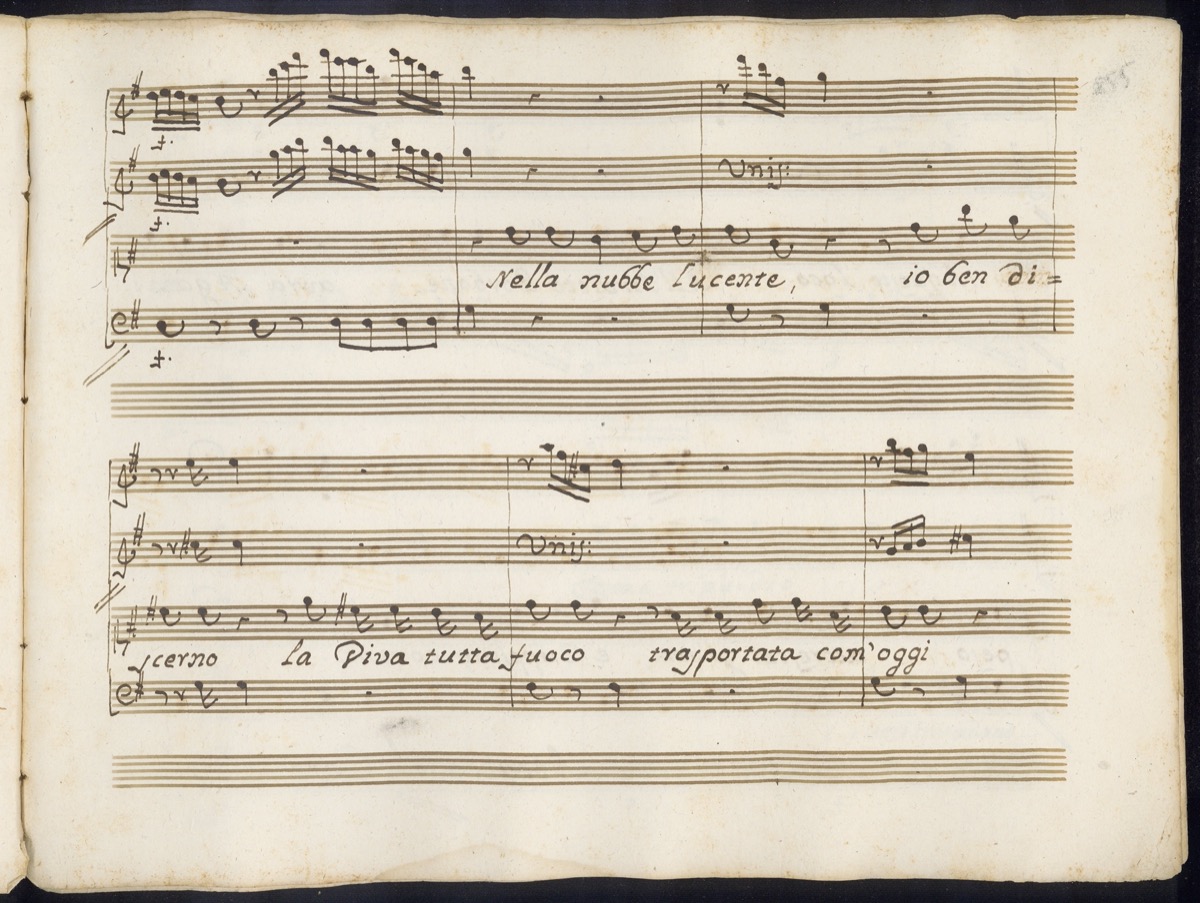 Unis:
Nella nubbe lucente, io ben di=
scerno la Diva tutta fuoco trasportata com'oggi
Unis: